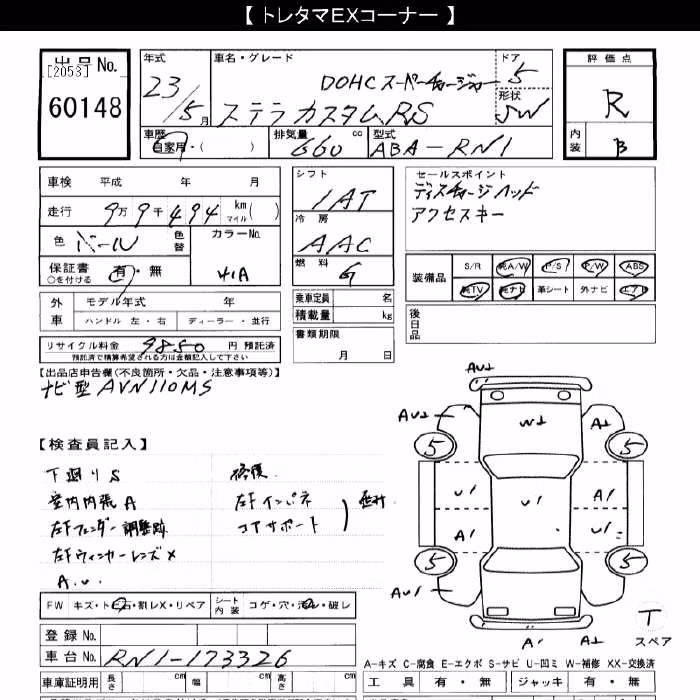 【 トレタマEXコーナー 】
出品 No.
[2053]
60148
年式
23/5月
車名・グレード
DOHCスーパーチャージャー
ステラカスタムRS
ドア
5
形状
SW
評価点
R
内装
B
車歴
自家用・( )
排気量
660 cc
型式
ABA-RN1
車検 平成 年 月
走行 9万9千494 km マイル ( )
色 パール
色替
カラーNo.
41A
保証書 有・無
○を付ける
シフト
IAT
冷房
AAC
燃料
G
セールスポイント
ディスチャージヘッド
アクセスキー
装備品
S/R 純A/W P/S P/W ABS
純TV 純ナビ 革シート 外ナビ エアB
外車
モデル年式 年
ハンドル 左・右 ディーラー・並行
乗車定員 名
積載量 kg
後日品
リサイクル料金 9850 円 預託済
預託済で精算希望される方は金額記入して下さい
書類期限
月 日
【出品店申告欄(不良箇所・欠品・注意事項等)】
ナビ型 AVN110MS
【検査員記入】
下廻りS
室内内張A
左Fフェンダー調整跡
左Fウィンカーレンズ×
A.U.
修復
左Fインパネ
コアサポート
FW キズ・トビ石・割レX・リペア
シート内装 コゲ・穴・汚レ・破レ
登録 No.
車台 No. RN1-173326
車庫証明用 長さ cm 幅 cm 高さ cm
AU±
AU±
W±
A±
5
5
U'
U'
A'
A'
U'
5
5
AU'
A'
A±
T
スペア
A-キズ C-腐食 E-エクボ S-サビ U-凹ミ W-補修 XX-交換済
工具 有・無 ジャッキ 有・無